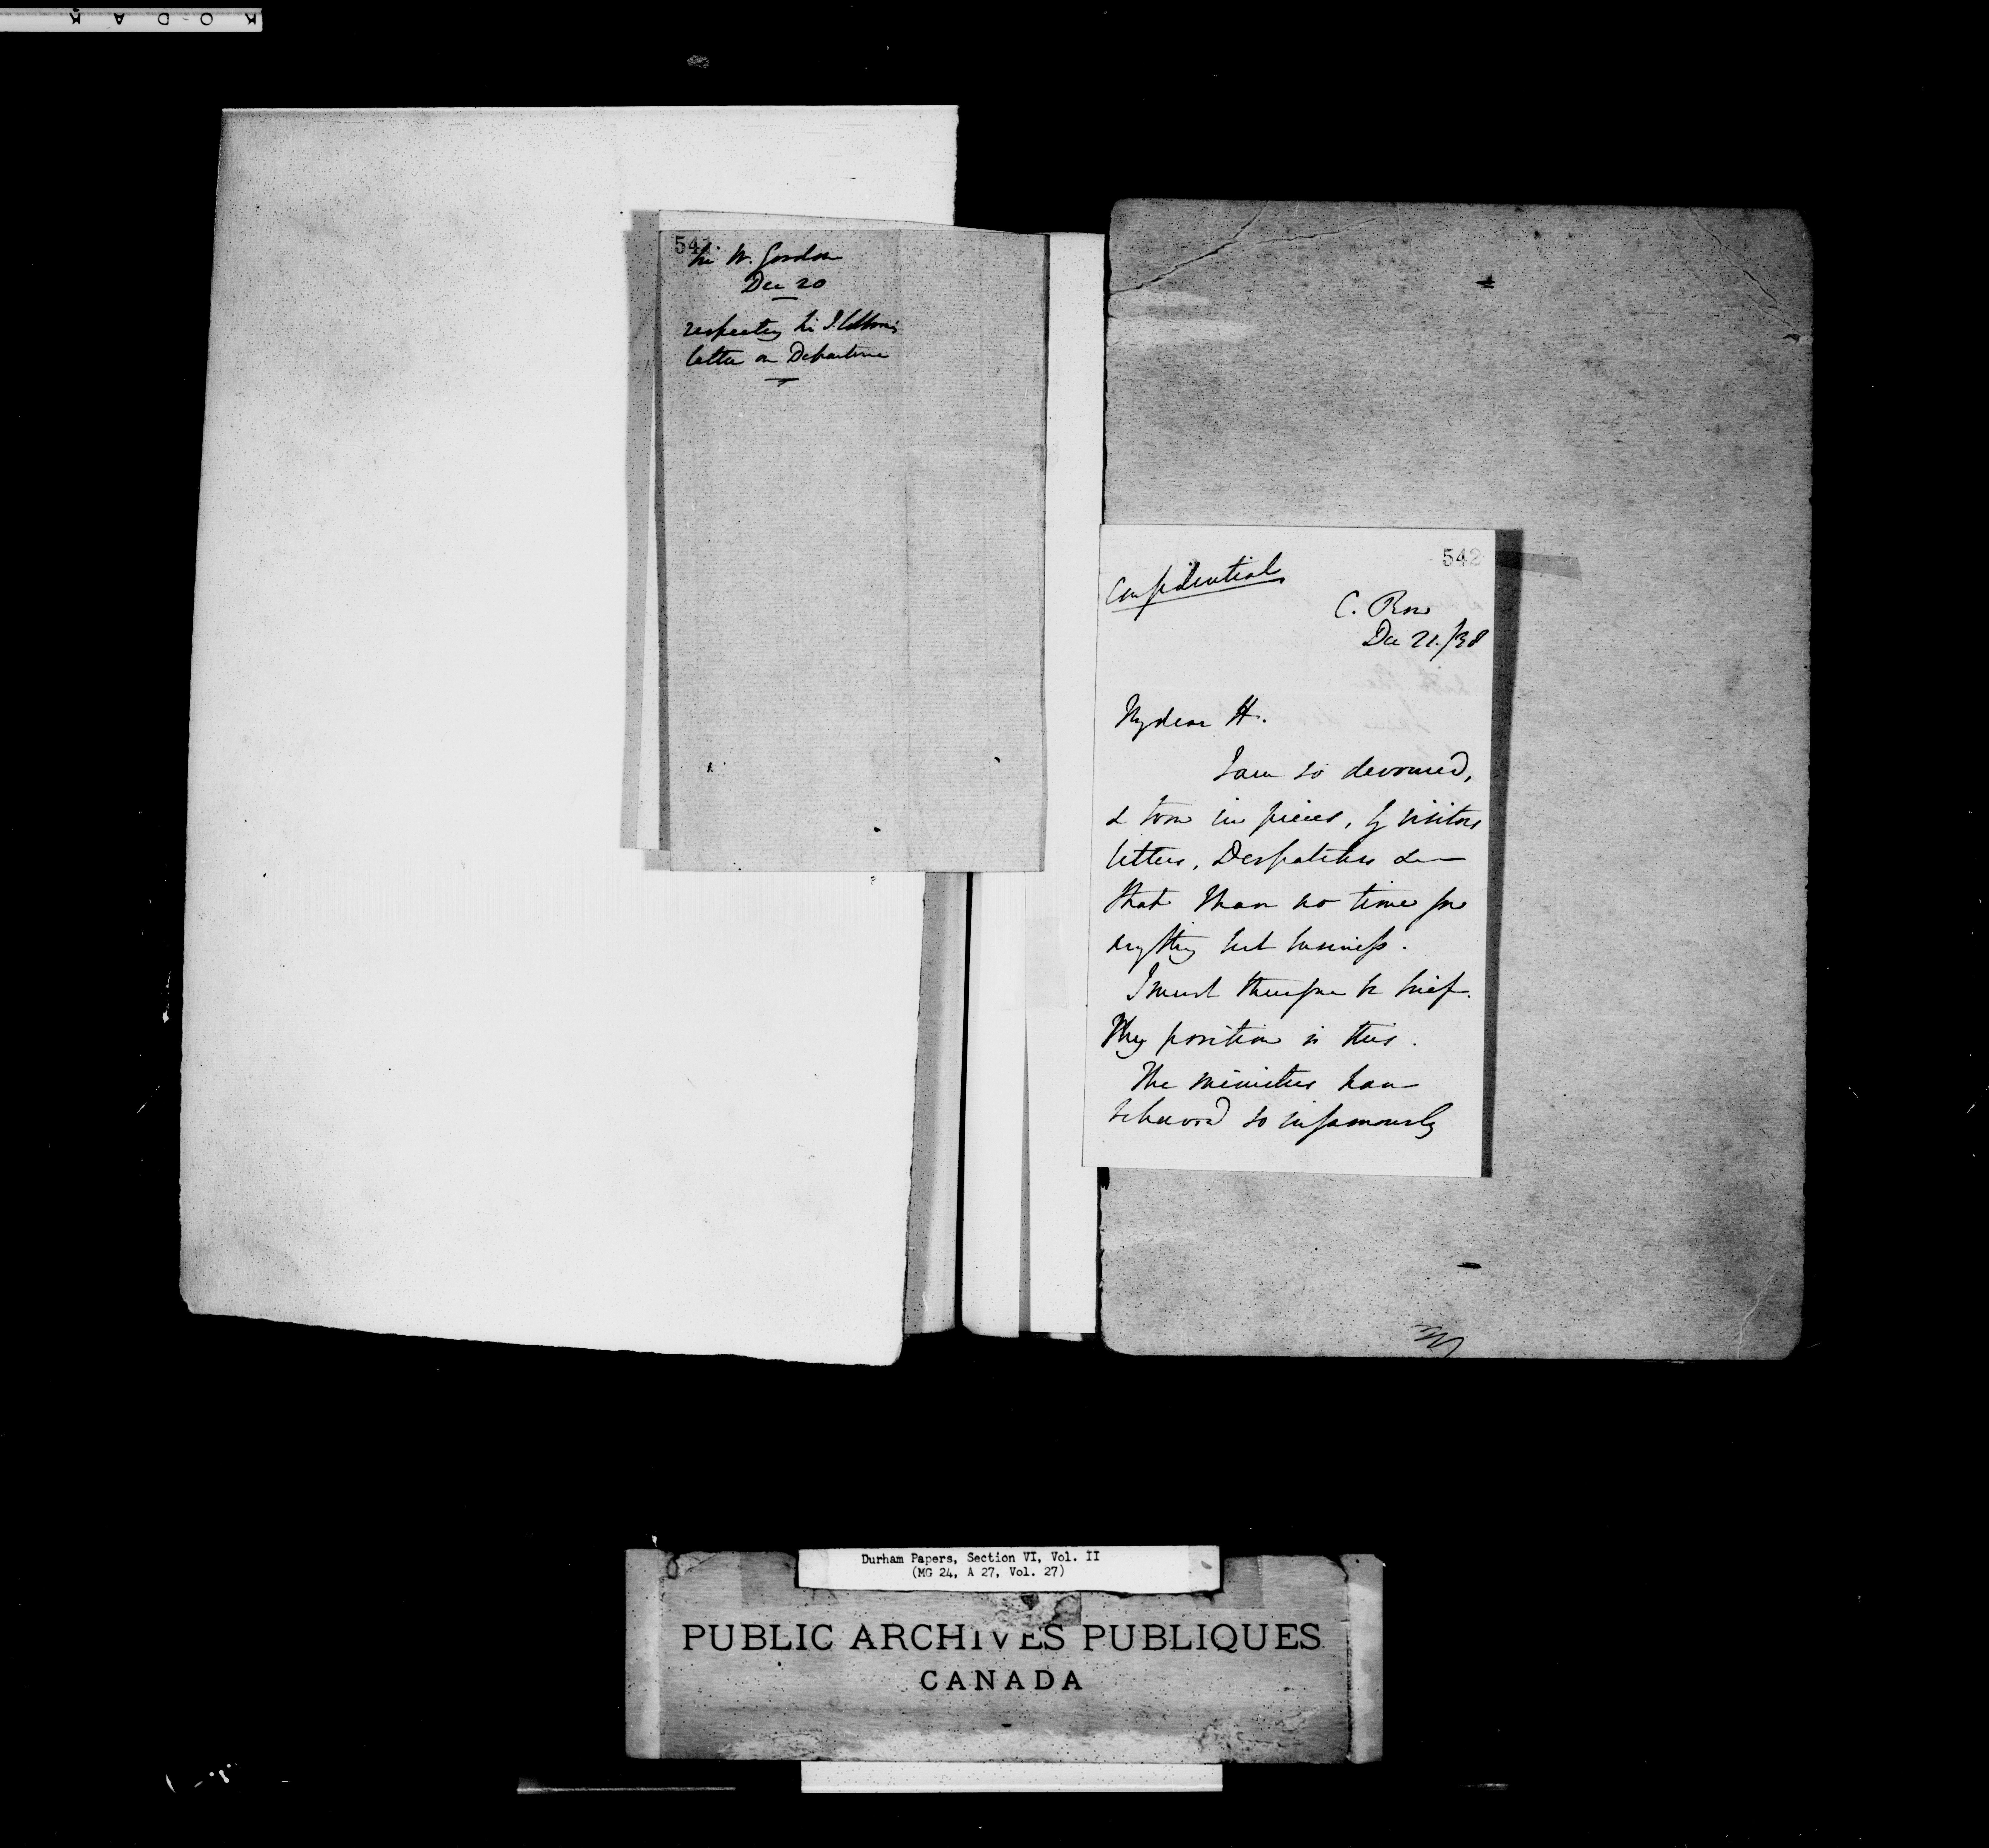 KODAK
541.
Sir W. Gordon
Dec 20
respecting Sir J. Colborne's
letter on Departure
542
Confidential
C. Row
Dec 21./38
My dear H.
I am so devoured,
& torn in pieces, by visitors
letters, Despatches &c
that I have no time for
anything but business.
I must therefore be brief.
My position is this.
The ministers have
behaved so infamously
Durham Papers, Section VI, Vol. II
(MG 24, A 27, Vol. 27)
PUBLIC ARCHIVES PUBLIQUES
CANADA